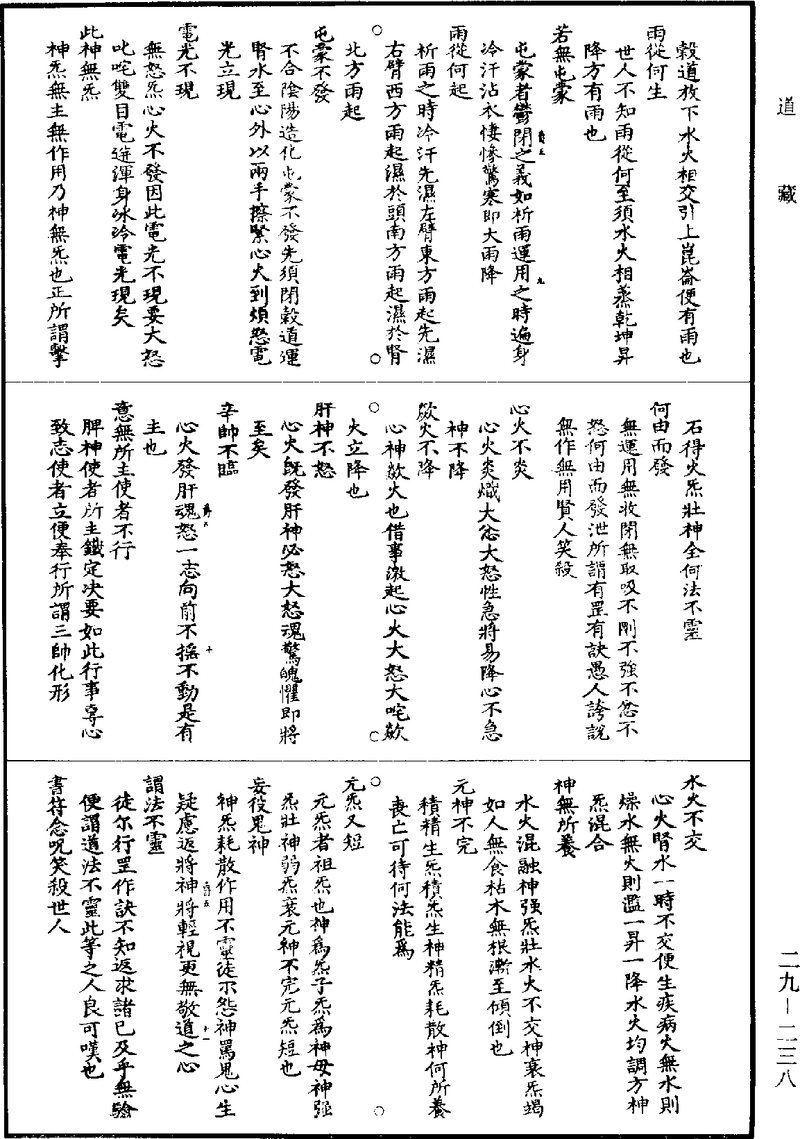 道藏
穀道放下水火相交引上崑崙便有雨也
雨從何生
世人不知雨從何至須水火相蒸乾坤昇
降方有雨也
若無屯蒙
屯蒙者鬱閉之義如祈雨運用之時遍身
冷汗沾衣悽慘驚寒即大雨降
雨從何起
祈雨之時冷汗先濕左臂東方雨起先濕
右臂西方雨起濕於頭南方雨起濕於腎
北方雨起
屯蒙不發
不合陰陽造化屯蒙不發先須閉穀道運
腎水至心外以兩手擦緊心火到煩怒電
光立現
電光不現
無怒炁心火不發因此電光不現要大怒
叱咤雙目電迸渾身冰冷電光現矣
此神無炁
神炁無主無作用乃神無炁也正所謂擊
石得火炁壯神全何法不靈
何由而發
無運用無收閉無取吸不剛不強不忿不
怒何由而發泄所謂有罡有訣愚人誇說
無作無用賢人笑殺
心火不炎
心火炎熾大忿大怒性急將易降心不急
神不降
歘火不降
心神歘火也借事激起心火大怒大咤歘
火立降也
肝神不怒
心火既發肝神必怒大怒魂驚魄懼即將
至矣
辛帥不臨
心火發肝魂怒一志向前不搖不動是有
主也
意無所主使者不行
脾神使者所主鐵定决要如此行事專心
致志使者立便奉行所謂三帥化形
水火不交
心火腎水一時不交便生疾病火無水則
燥水無火則濫一昇一降水火均調方神
炁混合
神無所養
水火混融神强炁壯水火不交神衰炁竭
如人無食枯木無根漸至傾倒也
元神不完
積精生炁積炁生神精炁耗散神何所養
喪亡可待何法能爲
元炁又短
元炁者祖炁也神爲炁子炁爲神母神强
炁壯神弱炁衰元神不完元炁短也
妄役鬼神
神炁耗散作用不靈徒尔怨神罵鬼心生
疑慮返將神將輕視更無敬道之心
謂法不靈
徒尔行罡作訣不知返求諸己及乎無驗
便謂道法不靈此等之人良可嘆也
書符念呪笑殺世人
二九—二三八